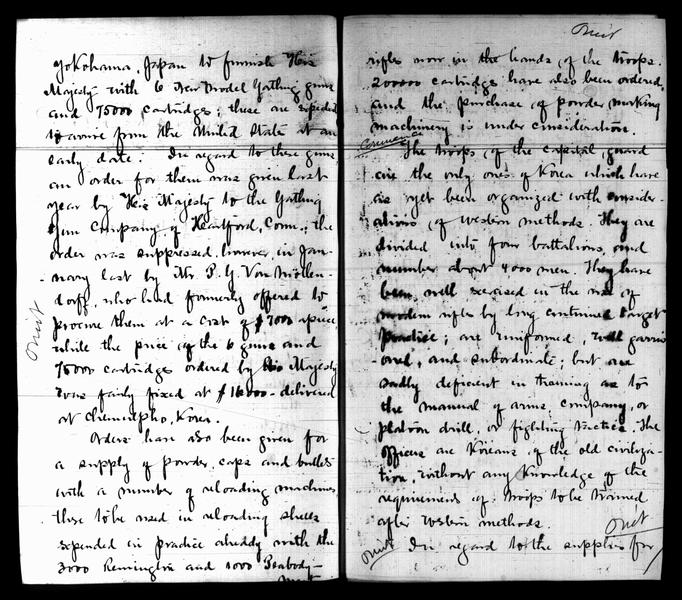 Yokohama, Japan to furnish His
Majesty with 6 New Model Gatling guns
and 75000 cartridges; these are expected
to arrive from the United States at an
early date. In regard to these guns,
an order for them was given last
year by His Majesty to the Gatling
Gun Company, of Hartford, Conn.; the
order was suppressed, however, in Jan-
uary last by Mr. P. G. Von Möllen-
dorff, who had formerly offered to
procure them at a cost of $7000 apiece,
while the price of the 6 guns and
75000 cartridges ordered by His Majesty
was fairly fixed at $16000 - delivered
at Chemulpho, Korea.
Orders have also been given for
a supply of powder, caps and bullets
with a number of reloading machines,
these to be used in reloading shells
expended in practice already with the
3000 Remington and 1000 Peabody-
Omit
Omit
rifles now in the hands of the troops.
200000 cartridges have also been ordered,
and the purchase of powder making
machinery is under consideration.
Commence
The troops of the capital guard
are the only ones of Korea which have
as yet been organized with consider-
ations of Western methods. They are
divided into four battalions, and
number about 4000 men. They have
been well exercised in the use of
modern rifles by long continued target
practice; are uniformed, well garris-
oned, and subordinate; but are
sadly deficient in training as to
the manual of arms, company, or
platoon drill, or fighting tactics. The
officers are Koreans of the old civiliza-
tion, without any knowledge of the
requirements of troops to be trained
after Western methods.
Omit
Omit In regard to the supplies for